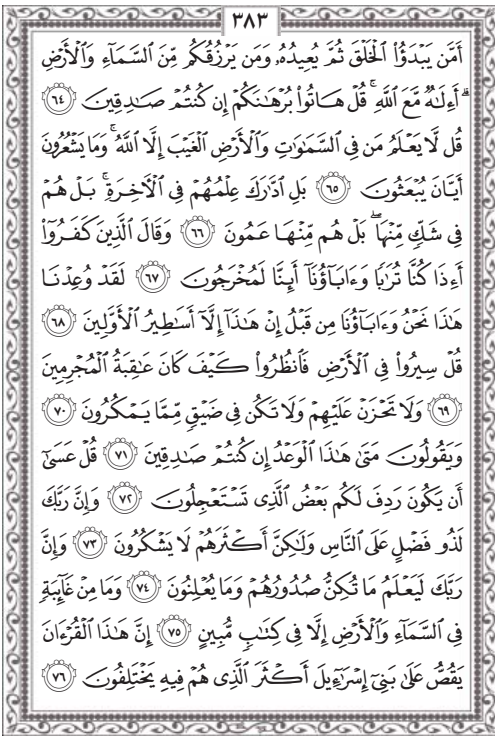 ٣٨٣
أَمَّن يَبْدَؤُا۟ ٱلْخَلْقَ ثُمَّ يُعِيدُهُۥ وَمَن يَرْزُقُكُم مِّنَ ٱلسَّمَآءِ وَٱلْأَرْضِ
ۗ أَءِلَٰهٌ مَّعَ ٱللَّهِ ۚ قُلْ هَاتُوا۟ بُرْهَٰنَكُمْ إِن كُنتُمْ صَٰدِقِينَ ٦٤
قُل لَّا يَعْلَمُ مَن فِى ٱلسَّمَٰوَٰتِ وَٱلْأَرْضِ ٱلْغَيْبَ إِلَّا ٱللَّهُ ۚ وَمَا يَشْعُرُونَ
أَيَّانَ يُبْعَثُونَ ٦٥ بَلِ ٱدَّٰرَكَ عِلْمُهُمْ فِى ٱلْءَاخِرَةِ ۚ بَلْ هُمْ
فِى شَكٍّ مِّنْهَا ۖ بَلْ هُم مِّنْهَا عَمُونَ ٦٦ وَقَالَ ٱلَّذِينَ كَفَرُوٓا۟
أَءِذَا كُنَّا تُرَٰبًا وَءَابَآؤُنَآ أَئِنَّا لَمُخْرَجُونَ ٦٧ لَقَدْ وُعِدْنَا
هَٰذَا نَحْنُ وَءَابَآؤُنَا مِن قَبْلُ إِنْ هَٰذَآ إِلَّآ أَسَٰطِيرُ ٱلْأَوَّلِينَ ٦٨
قُلْ سِيرُوا۟ فِى ٱلْأَرْضِ فَٱنظُرُوا۟ كَيْفَ كَانَ عَٰقِبَةُ ٱلْمُجْرِمِينَ
٦٩ وَلَا تَحْزَنْ عَلَيْهِمْ وَلَا تَكُن فِى ضَيْقٍ مِّمَّا يَمْكُرُونَ ٧٠
وَيَقُولُونَ مَتَىٰ هَٰذَا ٱلْوَعْدُ إِن كُنتُمْ صَٰدِقِينَ ٧١ قُلْ عَسَىٰٓ
أَن يَكُونَ رَدِفَ لَكُم بَعْضُ ٱلَّذِى تَسْتَعْجِلُونَ ٧٢ وَإِنَّ رَبَّكَ
لَذُو فَضْلٍ عَلَى ٱلنَّاسِ وَلَٰكِنَّ أَكْثَرَهُمْ لَا يَشْكُرُونَ ٧٣ وَإِنَّ
رَبَّكَ لَيَعْلَمُ مَا تُكِنُّ صُدُورُهُمْ وَمَا يُعْلِنُونَ ٧٤ وَمَا مِنْ غَآئِبَةٍ
فِى ٱلسَّمَآءِ وَٱلْأَرْضِ إِلَّا فِى كِتَٰبٍ مُّبِينٍ ٧٥ إِنَّ هَٰذَا ٱلْقُرْءَانَ
يَقُصُّ عَلَىٰ بَنِىٓ إِسْرَٰٓءِيلَ أَكْثَرَ ٱلَّذِى هُمْ فِيهِ يَخْتَلِفُونَ ٧٦